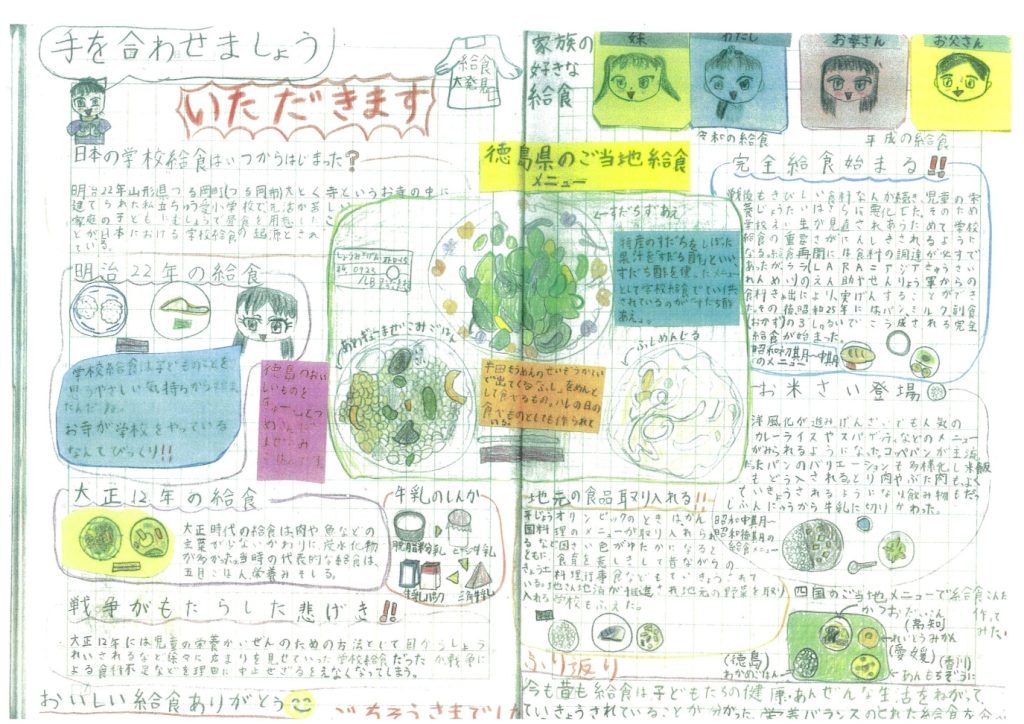 手を合わせましょう
いただきます
給食
大発見
日本の学校給食はいつからはじまった?
明治22年山形県つる岡町(つる岡市)大とく寺というお寺の中に
建てられた私立ちゅう愛小学校で生活が苦しい
家庭の子どもにむしょうで昼食を用意したこ
とが日本における学校給食の起源とされ
ている。
明治22年の給食
学校給食は子どものことを
思うやさしい気持ちから
お寺が学校をやっている
なんてびっくり!!
徳島のおい
しいものを
大正12年の給食
大正時代の給食は肉や魚などの
主菜が少ないかわりに炭水化物
が多かった。当時の代表的な給食は、
五目ごはん、栄養みそしる。
牛乳のしんか
脱脂粉乳
ビン牛乳
牛乳パック
三角牛乳
戦争がもたらした悲げき!!
大正12年には児童の栄養かいぜんのための方法として国からしょう
れいされるなど徐々に広まりを見せていった学校給食だったが戦争に
よる食料不足などを理由に中止せざるをえなくなってしまう。
おいしい給食ありがとう
ごちそうさまでした
家族の
好きな
給食
妹
わたし
お母さん
お父さん
令和の給食
平成の給食
徳島県のご当地給食
メニュー
←すだちずあえ
特産のすだちをしぼった
果汁を「すだち酢」といい
すだち酢を使ったメニュー
として学校給食でてい供
されているのが「すだち酢
あえ」。
ふしめんじる
半田そうめんのせいぞうかてい
で出てくる「ふし」をめんと
して食べるもの。ハレの日の
食べものとしても作られて
いる。
完全給食始まる!!
戦後もきびしい食料なんが続き、児童の栄
養じょうたいはさらに悪化した。そのため
学校えい生が見直されあらためて学校
給食の重要さがにんしきされるように
なる。給食再開には食料の調達が必すで
あったがララ(LARA=アジアきゅうさい
れんめい)のえん助やせんりょう軍からの
食料ほう出により、実げんすることができ
た。その後、昭和25年にはパン、ミルク、副食
(おかず)の3しゅるいでこう成される完全
給食が始まった。
昭和初期〜中期の
メニュー
お米さい登場
洋風化が進みげんざいでも人気の
カレーライスやスパゲティなどのメニュー
がみられるようになったコッペパンが主流
だったパンのバリエーションも多様化し米飯
もどう入されるととり肉やぶた肉もよく
ていきょうされるようになり飲み物もだっ
しふんにゅうから牛乳に切りかわった。
昭和中期〜
昭和後期の
給食メニュー
地元の食品取り入れる!!
平じょうオリンピックのときはかん
国料理のメニューが取り入れられ
るなど国さい色がゆたかになると
ともに食育を通して昔ながらの
きょう土料理、行事食などもていきょうされて
いる。地さん地消が推進され地元の野菜を取り
入れる学校もふえた。
四国のご当地メニューで給食こんだて
作って
みたい
(高知)
れいとうみかん
(愛媛)
(香川)
あんもちぞうに
(徳島)
わかめごはん
ふり返り
今も昔も給食は子どもたちの健康、あんぜんな生活をねがって
ていきょうされていることが分かった。栄養バランスのとれた給食を